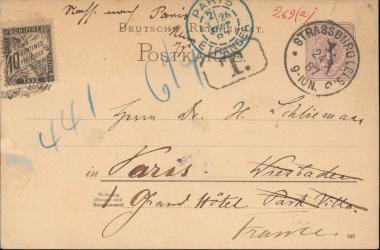 269(a)
Nachs. nach Paris
DEUTSCHE REICHSPOST
POSTKARTE
CHIFFRE
10
CENTIMES
TAXE
PARIS
ETRANGER
T.
STRASSBURG (ELS)
9-10N.
441
Herrn Dr. H. Schliemann
in Paris. Wiesbaden
Wohnung
(Straße und
Hausnummer)
Grand Hôtel Park Villa.
France.